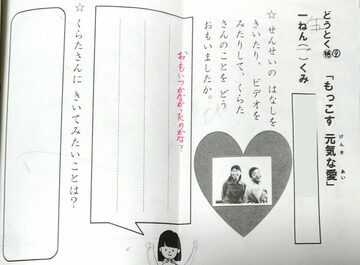 どうとく㊙⑦
「もっこす　元気な愛」
げんき　あい
一ねん（　）くみ
☆せんせいの　はなしを
きいたり、ビデオを
みたりして、くらた
さんのことを　どう
おもいましたか。
おもいつかなかったのかな？
☆くらたさんに　きいてみたいことは？